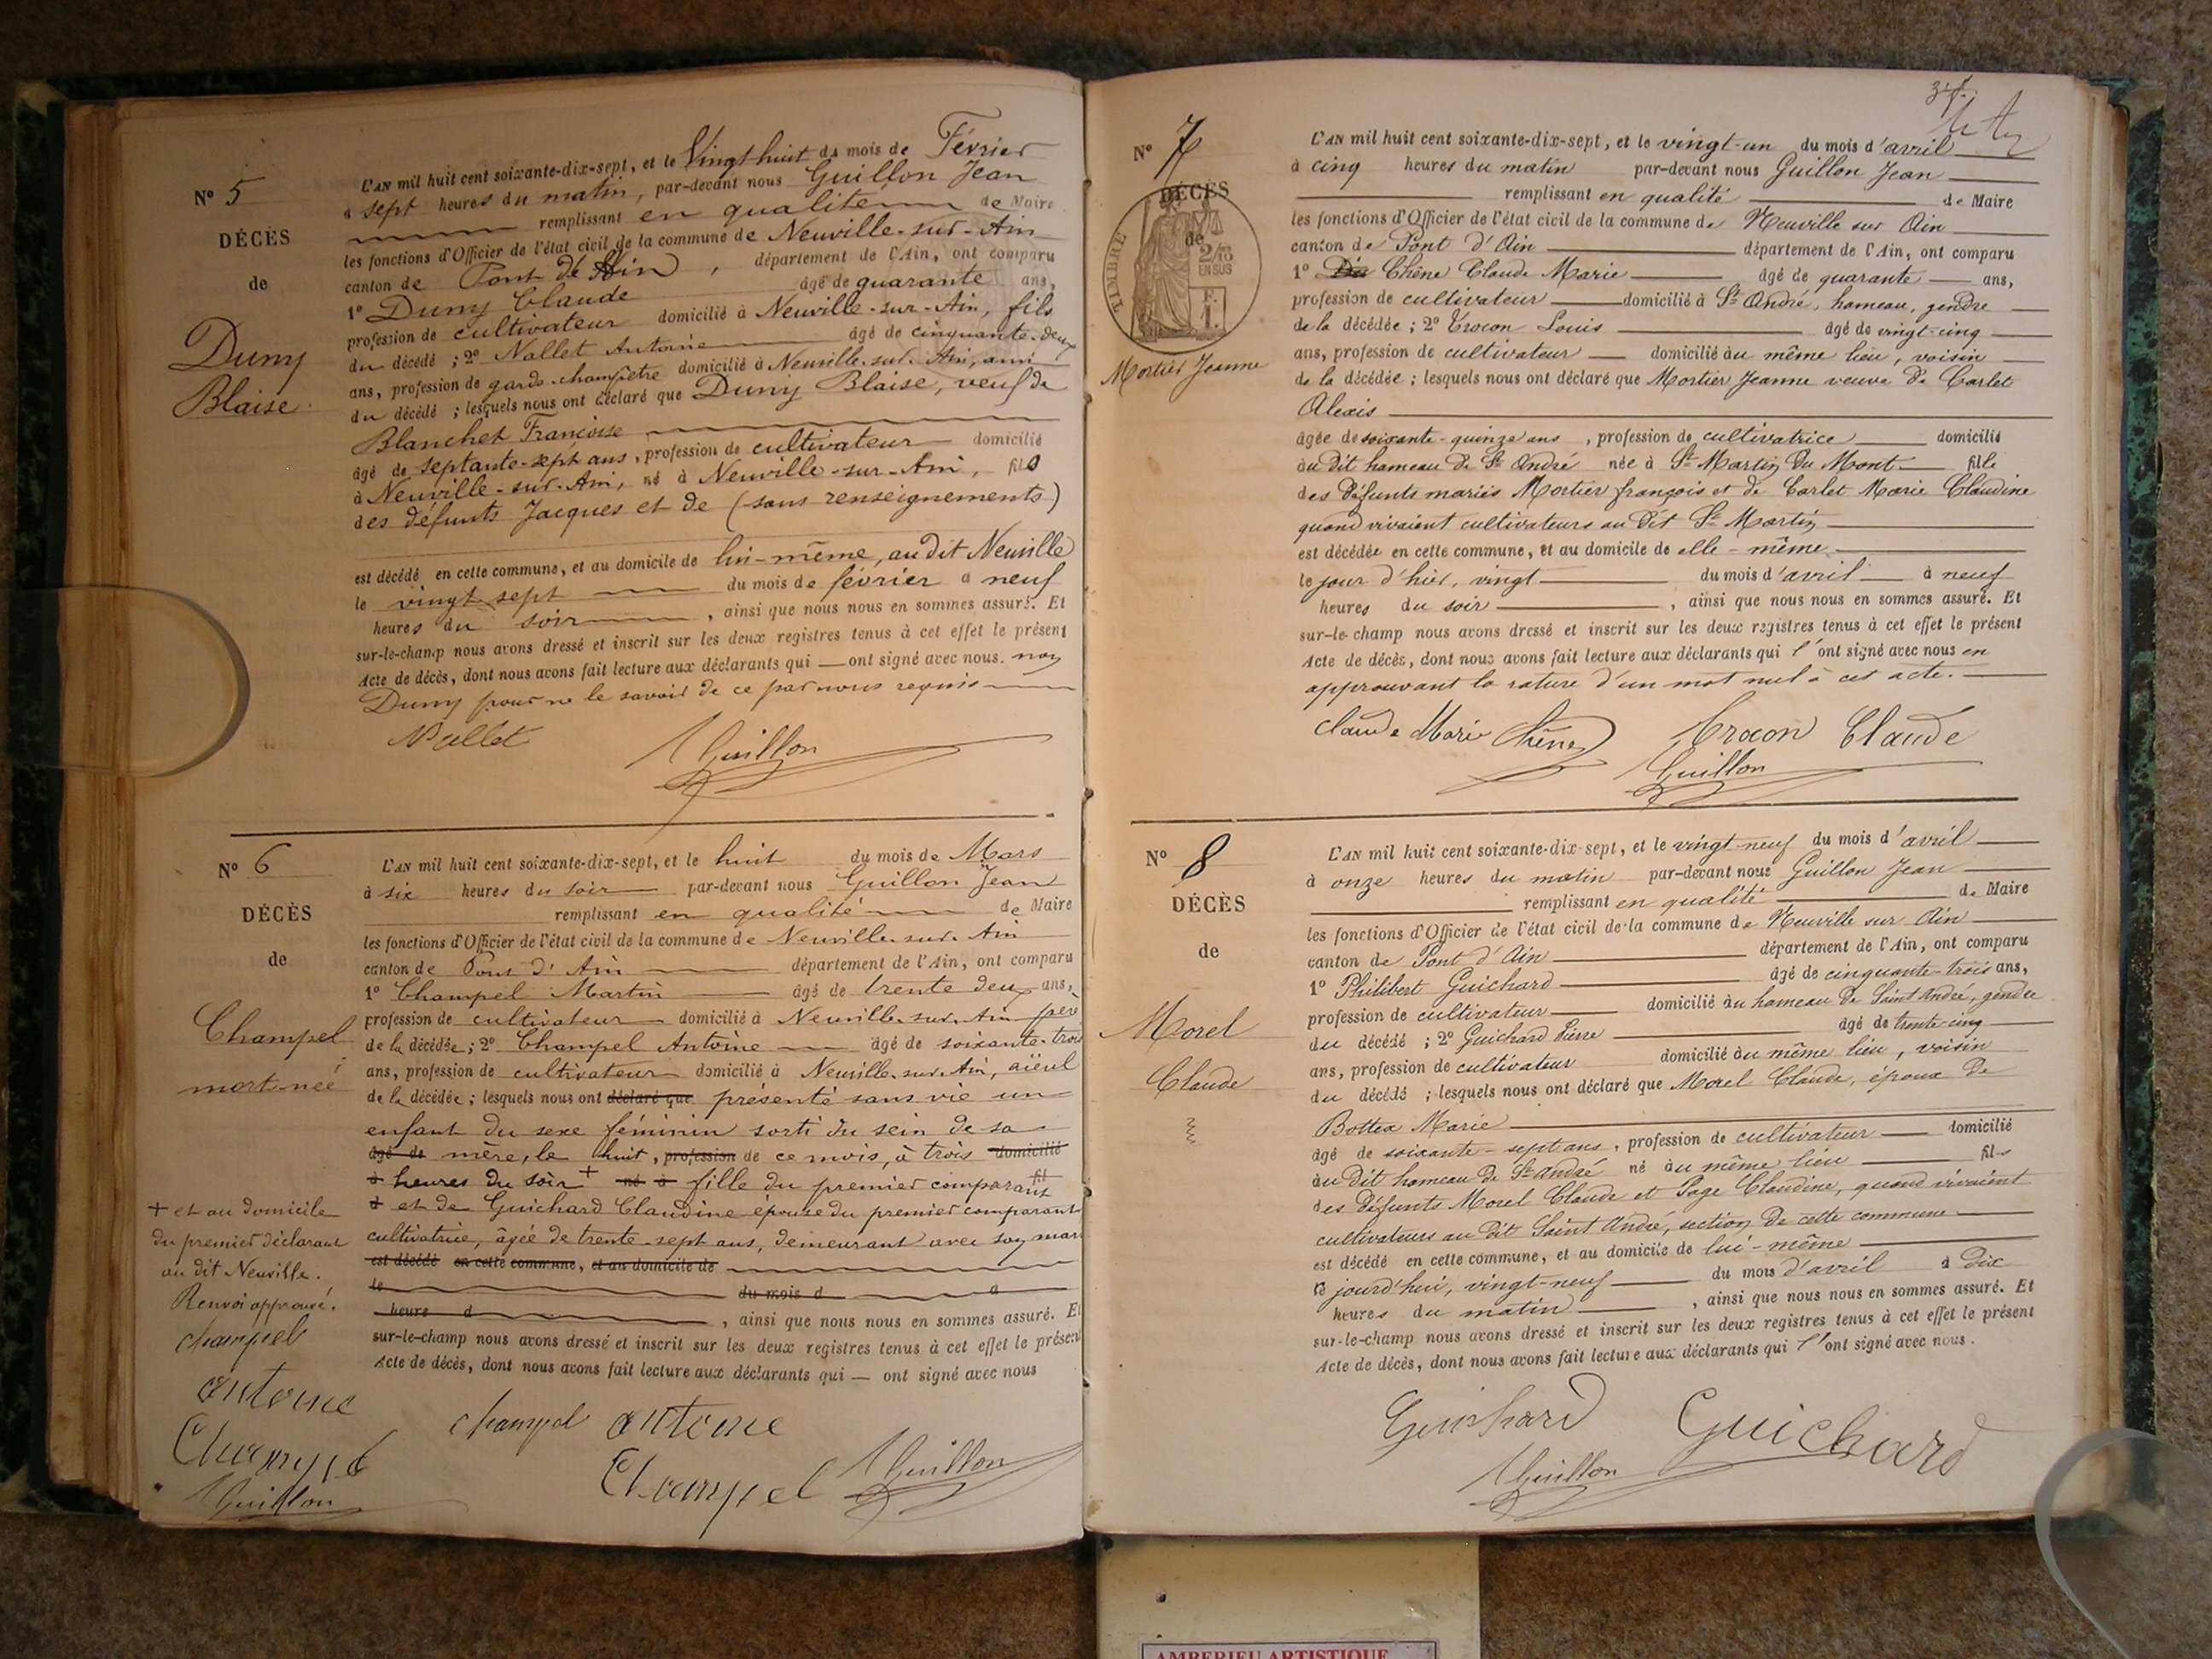 N° 5
DÉCÈS
de
Duny
Blaise
L'AN mil huit cent soixante-dix-sept, et le Vingt huit du mois de Février
à sept heures du matin, par-devant nous Guillon Jean
remplissant en qualité de Maire
les fonctions d'Officier de l'état civil de la commune de Neuville-sur-Ain
canton de Pont d'Ain, département de l'Ain, ont comparu
1° Duny Claude âgé de quarante ans,
profession de cultivateur domicilié à Neuville-sur-Ain, fils
du décédé ; 2° Nallet Antoine âgé de cinquante-deux
ans, profession de garde-champêtre domicilié à Neuville-sur-Ain, ami
du décédé ; lesquels nous ont déclaré que Duny Blaise, veuf de
Blanchet Françoise
âgé de septante-sept ans, profession de cultivateur domicilié
à Neuville-sur-Ain, né à Neuville-sur-Ain, fils
des défunts Jacques et de (sans renseignements)
est décédé en cette commune, et au domicile de lui-même, au dit Neuville
le vingt sept du mois de février à neuf
heures du soir, ainsi que nous nous en sommes assuré. Et
sur-le-champ nous avons dressé et inscrit sur les deux registres tenus à cet effet le présent
Acte de décès, dont nous avons fait lecture aux déclarants qui — ont signé avec nous. non
Duny pour ne le savoir de ce par nous requis
Nallet Guillon
N° 6
DÉCÈS
de
Champel
mort-née
L'AN mil huit cent soixante-dix-sept, et le huit du mois de Mars
à six heures du soir par-devant nous Guillon Jean
remplissant en qualité de Maire
les fonctions d'Officier de l'état civil de la commune de Neuville-sur-Ain
canton de Pont d'Ain département de l'Ain, ont comparu
1° Champel Martin âgé de trente deux ans,
profession de cultivateur domicilié à Neuville-sur-Ain père
de la décédée ; 2° Champel Antoine âgé de soixante-trois
ans, profession de cultivateur domicilié à Neuville-sur-Ain, aïeul
de la décédée ; lesquels nous ont déclaré que présenté sans vie un
enfant du sexe féminin sorti du sein de sa
âgé de mère, le huit, profession de ce mois, à trois domicilié
à heures du soir + né à fille du premier comparant fil
d et de Guichard Claudine épouse du premier comparant
cultivatrice, âgée de trente-sept ans, demeurant avec son mari
est décédé en cette commune, et au domicile de
le du mois d à
heure d, ainsi que nous nous en sommes assuré. Et
sur-le-champ nous avons dressé et inscrit sur les deux registres tenus à cet effet le présent
Acte de décès, dont nous avons fait lecture aux déclarants qui — ont signé avec nous
+ et au domicile
du premier déclarant
au dit Neuville.
Renvoi approuvé.
champel
antoine
Champel
Guillon
champel antoine
Champel Guillon
N° 7
DÉCÈS
de
TIMBRE
2/10
EN SUS
F.
1.
Mortier Jeanne
L'AN mil huit cent soixante-dix-sept, et le vingt-un du mois d'avril
à cinq heures du matin par-devant nous Guillon Jean
remplissant en qualité de Maire
les fonctions d'Officier de l'état civil de la commune de Neuville sur Ain
canton de Pont d'Ain département de l'Ain, ont comparu
1° Chêne Claude Marie âgé de quarante ans,
profession de cultivateur domicilié à St André, hameau, gendre
de la décédée ; 2° Trocon Louis âgé de vingt-cinq
ans, profession de cultivateur domicilié au même lieu, voisin
de la décédée ; lesquels nous ont déclaré que Mortier Jeanne veuve de Carlet
Alexis
âgée de soixante-quinze ans, profession de cultivatrice domicilié
au dit hameau de St André née à St Martin du Mont fille
des défunts mariés Mortier françois et de Carlet Marie Claudine
quand vivaient cultivateurs au dit St Martin
est décédée en cette commune, et au domicile de elle-même
le jour d'hier, vingt du mois d'avril à neuf
heures du soir, ainsi que nous nous en sommes assuré. Et
sur-le-champ nous avons dressé et inscrit sur les deux registres tenus à cet effet le présent
Acte de décès, dont nous avons fait lecture aux déclarants qui l'ont signé avec nous en
approuvant la rature d'un mot nul à cet acte.
Claude Marie Chêne Trocon Claude
Guillon
N° 8
DÉCÈS
de
Morel
Claude
L'AN mil huit cent soixante-dix-sept, et le vingt-neuf du mois d'avril
à onze heures du matin par-devant nous Guillon Jean
remplissant en qualité de Maire
les fonctions d'Officier de l'état civil de la commune de Neuville sur Ain
canton de Pont d'Ain département de l'Ain, ont comparu
1° Philibert Guichard âgé de cinquante-trois ans,
profession de cultivateur domicilié au hameau de Saint André, gendre
du décédé ; 2° Guichard Pierre âgé de trente-cinq
ans, profession de cultivateur domicilié au même lieu, voisin
du décédé ; lesquels nous ont déclaré que Morel Claude, époux de
Bottex Marie
âgé de soixante-sept ans, profession de cultivateur domicilié
au dit hameau de St André né au même lieu fils
des défunts Morel Claude et Page Claudine, quand vivaient
cultivateurs au dit Saint André, section de cette commune
est décédé en cette commune, et au domicile de lui-même
ce jourd'hui, vingt-neuf du mois d'avril à dix
heures du matin, ainsi que nous nous en sommes assuré. Et
sur-le-champ nous avons dressé et inscrit sur les deux registres tenus à cet effet le présent
Acte de décès, dont nous avons fait lecture aux déclarants qui l'ont signé avec nous.
Guichard Guichard
Guillon
AMBERIEU ARTISTIQUE